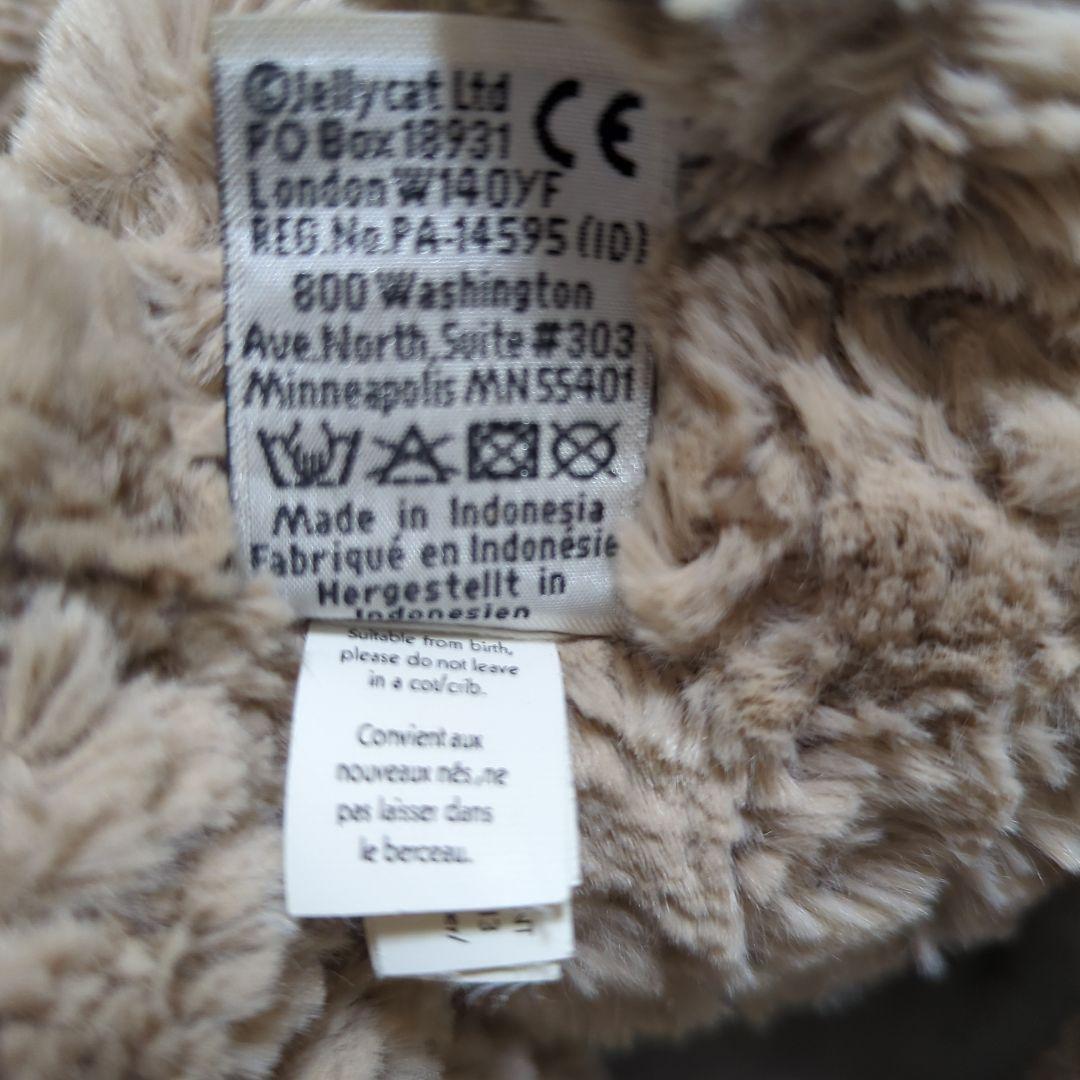 ©Jellycat Ltd
PO Box 18931
CE
London W140YF
REG.No.PA-14595 (ID)
800 Washington
Ave.North, Suite #303
Minneapolis MN 55401
Made in Indonesia
Fabriqué en Indonésie
Hergestellt in
Indonesien
Suitable from birth,
please do not leave
in a cot/crib.
Convient aux
nouveaux nés, ne
pas laisser dans
le berceau.
13